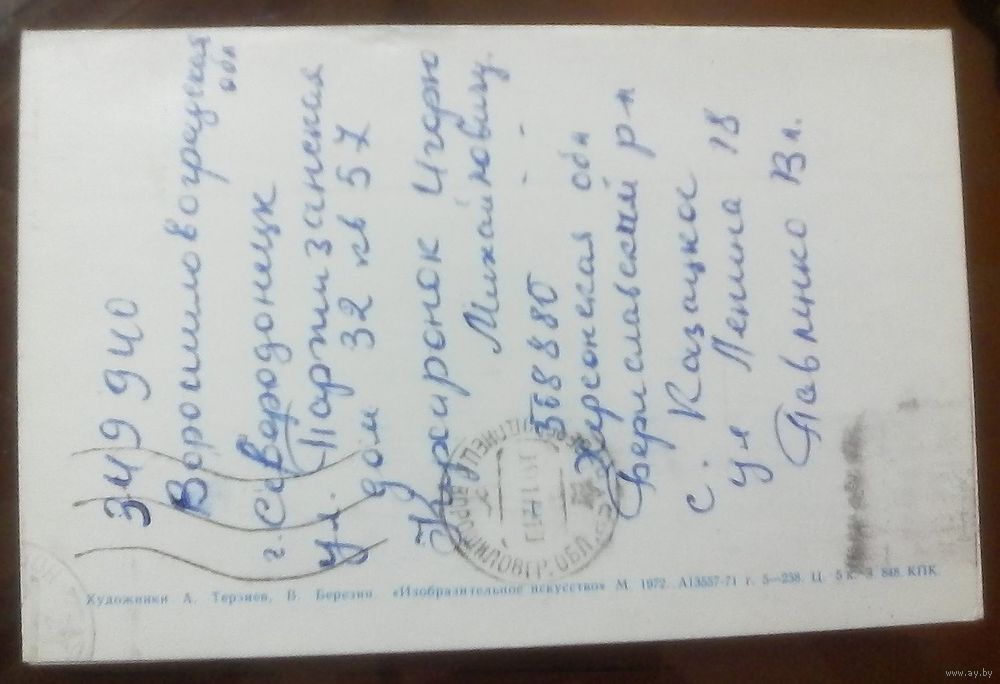 349940
Ворошиловоградская
обл
г. Северодонецк
ул. Партизанская
дом 32 кв 57
Игорю
Михайловичу.
Херсонская обл
Бериславский р-н
с. Казацкое
ул Ленина 18
Павленко Вл.
ВОРОШИЛОВГР. ОБЛ.
Художники А. Терзиев, В. Березин. «Изобразительное искусство» М. 1972. А13557-71 г. 5—238. Ц. 5 к. З. 848. КПК.
www.ay.by